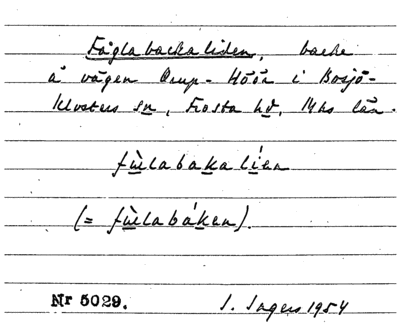 Fåglabackaliden, backe
å vägen Orup - Höör i Bosjö-
klosters sn, Frosta hd, Mhs län.
fùlabakalíen
(= fùlabáken).
Nr 5029. I. Ingers 1954